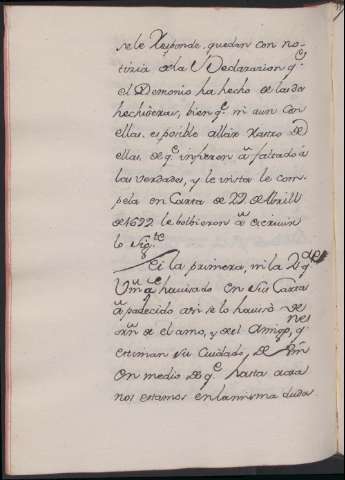 se le Responde. quedan con no-
ticia de la Declaracion q.e
el Demonio ha hecho de las dos
hechiceras, bien q.e ni aun con
ellas, es posible allàr Rastro de
ellas, de q.e infieren a faltado à
las verdades, y le insta le com-
pela en Carta de 22 de Abrill
de 1699 le bolbieron a escriuir
lo sig.te
Ni la primera, ni la 2.da q
Vm.d ha auisado en sus Cartas
a padecido asi se lo hauisò
de el amo, y del Amigo, q
estiman su Cuidado, de Vm
en medio de q.e hasta aora
nos estamos en la misma duda.